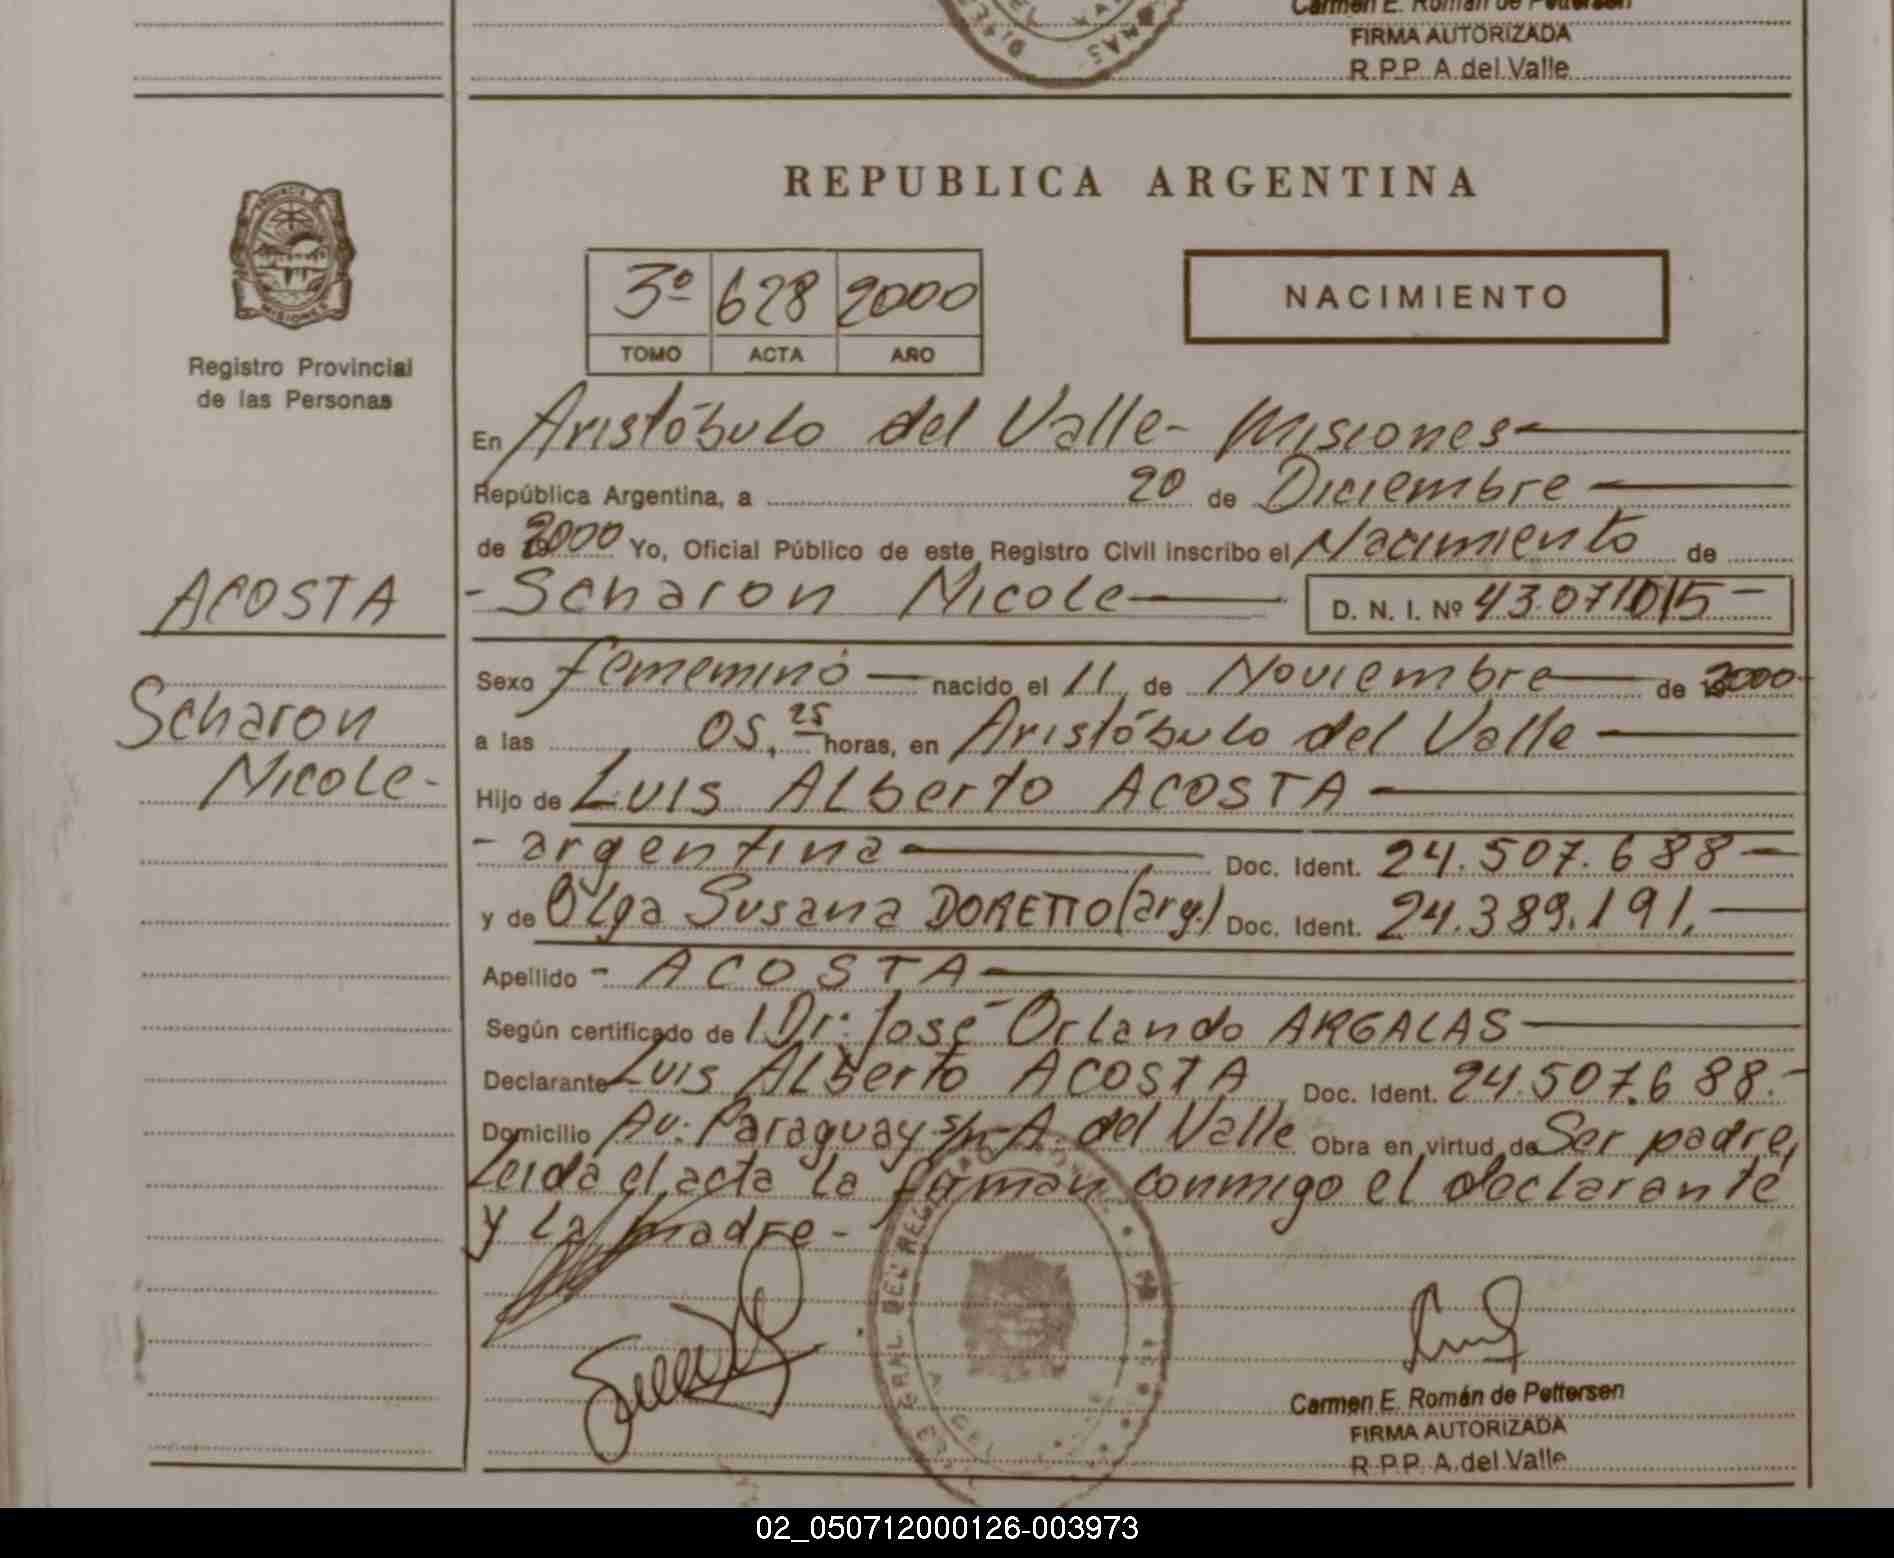 Carmen E. Román de Pettersen
FIRMA AUTORIZADA
R.P.P. A. del Valle
REPUBLICA ARGENTINA
PROVINCIA
MISIONES
3º 628 2000
TOMO ACTA AÑO
NACIMIENTO
Registro Provincial
de las Personas
En Aristóbulo del Valle - Misiones
República Argentina, a 20 de Diciembre
de 2000 Yo, Oficial Público de este Registro Civil inscribo el Nacimiento de
ACOSTA
- Scharon Nicole D. N. I. Nº 43.071.015 -
Sexo femenino nacido el 11 de Noviembre de 2000
Scharon
a las 05,25 horas, en Aristóbulo del Valle
Nicole-
Hijo de Luis Alberto ACOSTA
- argentina Doc. Ident. 24.507.688
y de Olga Susana DORETTO (arg.) Doc. Ident. 24.389.191.
Apellido - ACOSTA
Según certificado de Dr: José Orlando ARGALAS
Declarante Luis Alberto ACOSTA Doc. Ident. 24.507.688.-
Domicilio Av: Paraguay s/n- A. del Valle Obra en virtud de Ser padre,
Leida el acta la firman conmigo el declarante
y la madre -
Carmen E. Román de Pettersen
FIRMA AUTORIZADA
R.P.P. A. del Valle
02_050712000126-003973